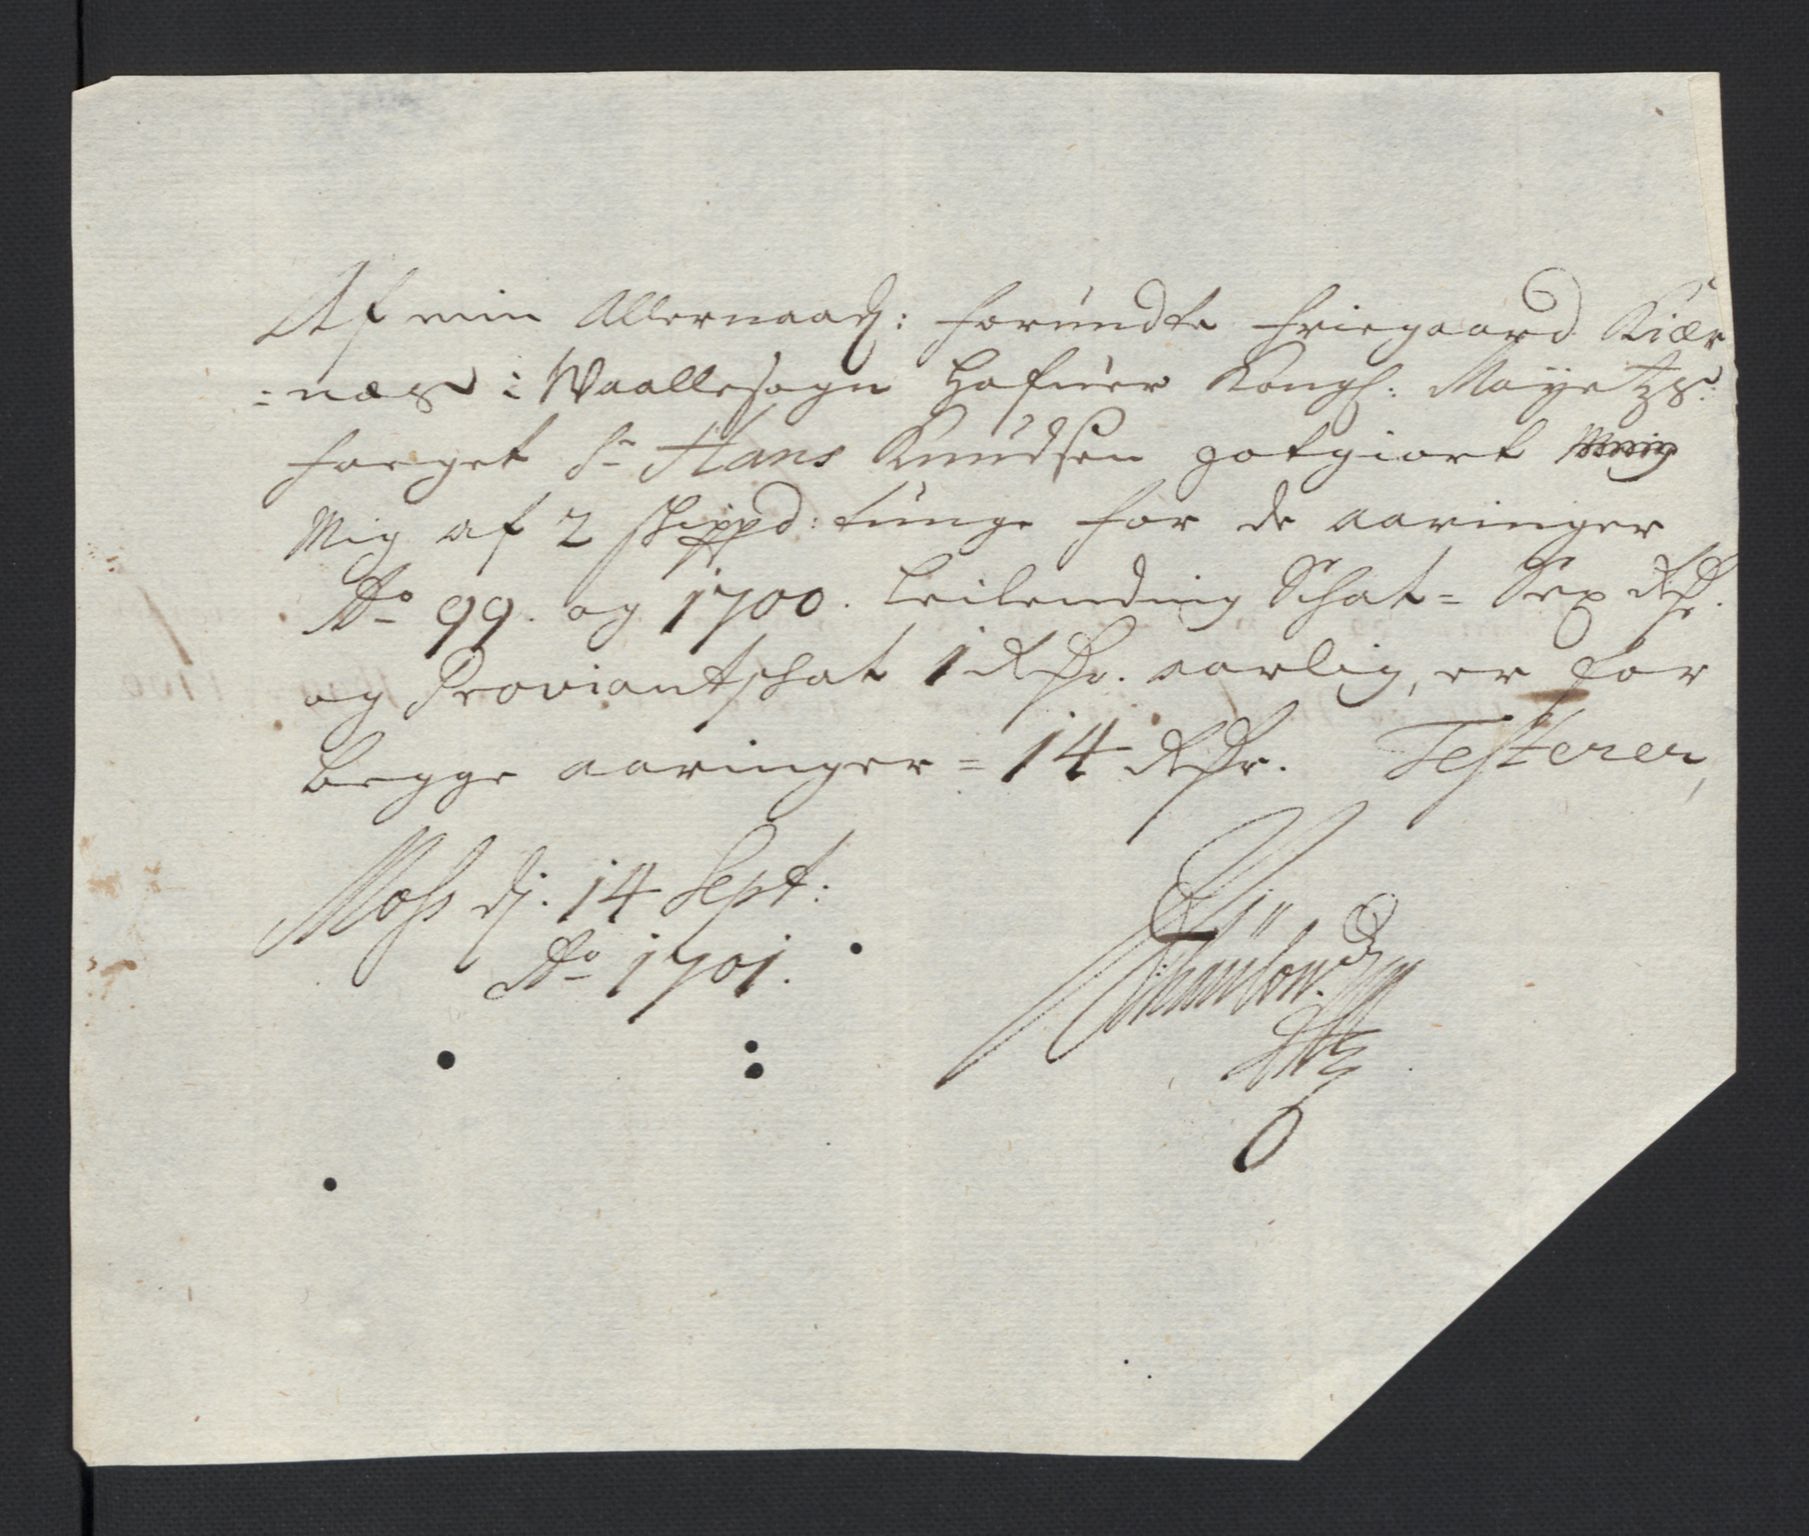 Af min Allernaadg: forundte friegaard Kiær
=næs i Waallesogn hafuer Kongl: Mayetzs:
foeget Sr Hans Knudsen gotgiort Mig
Mig af 2 skippd: tunge for de aaringer
Ao 99. og 1700. Leilending Schat = Sex Rdr.
og Proviantschat 1 Rdr. aarlig, er for
begge aaringer = 14 Rdr. Testerer,
Moss dj. 14 Sept:
Ao 1701.